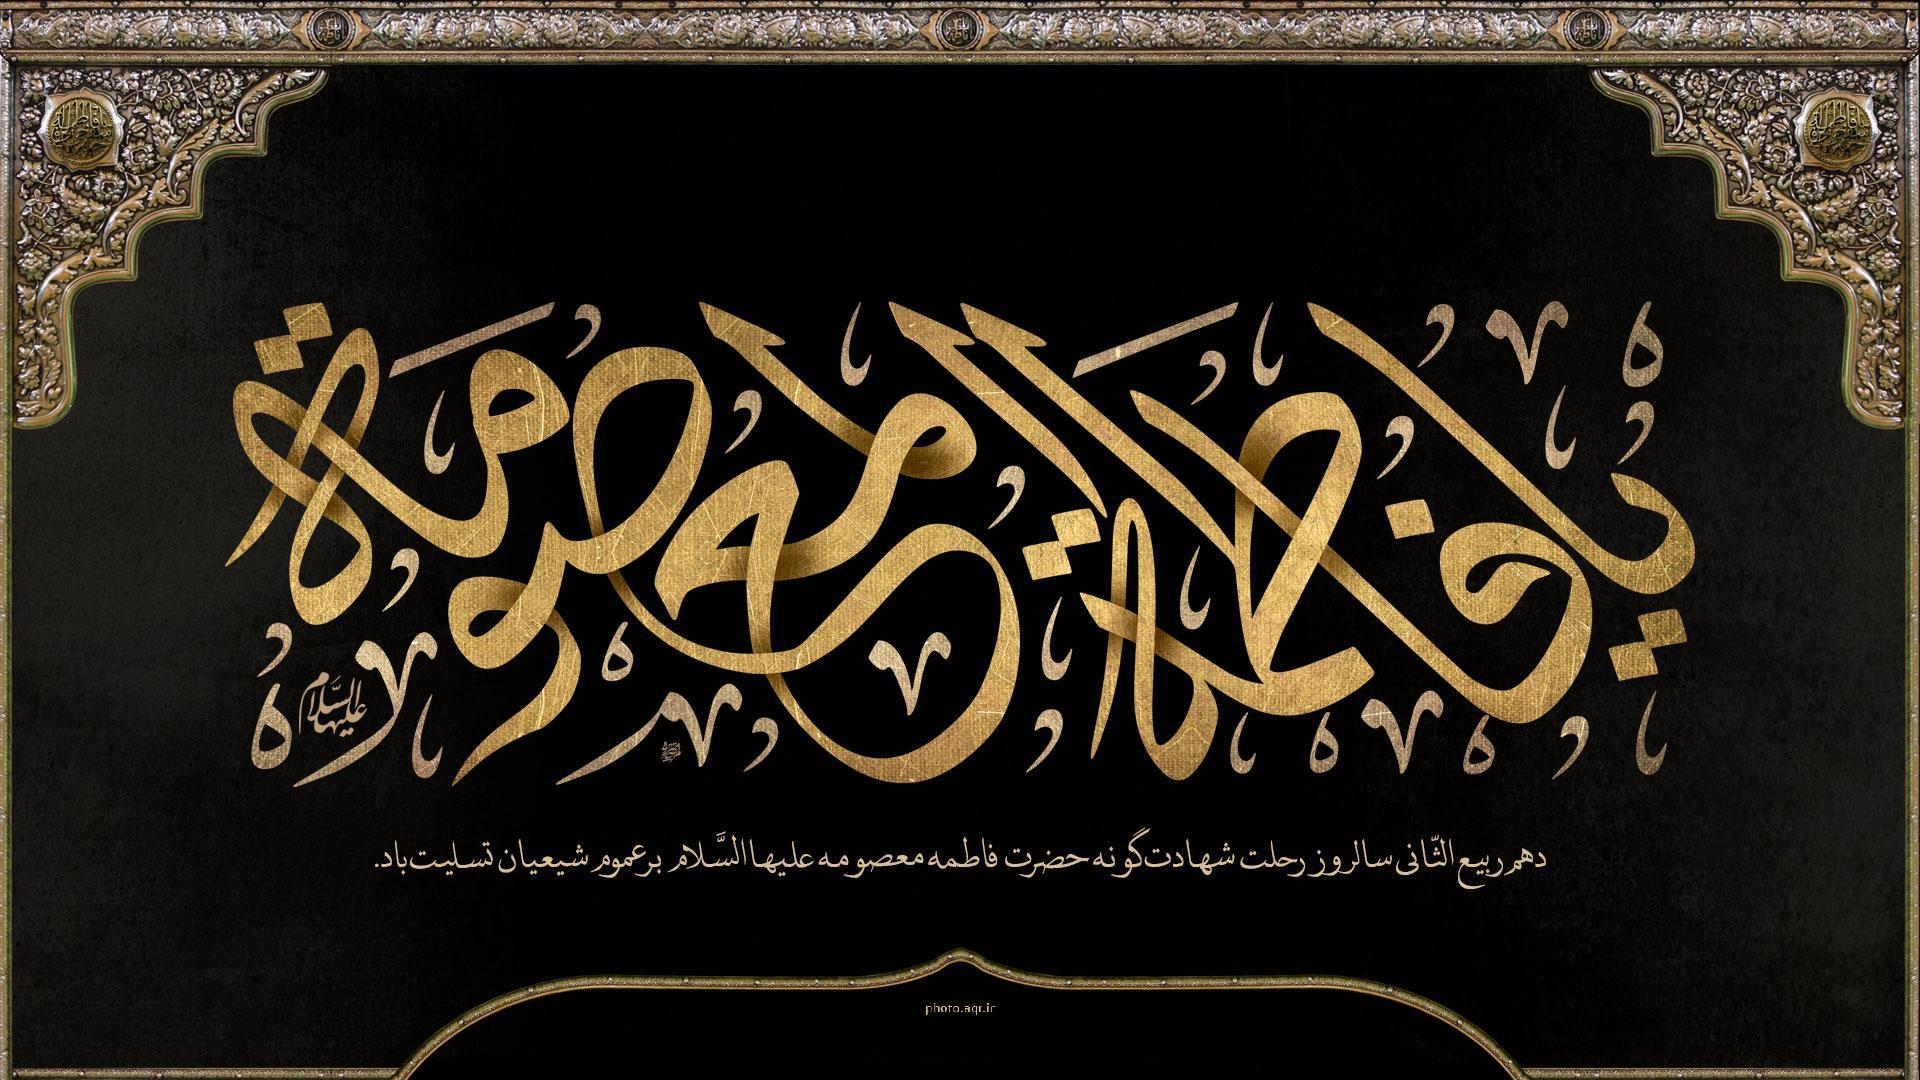 یا فاطمة المعصومة
علیها السَّلام
دهم ربیع الثّانی سالروز رحلت شهادت‌گونه حضرت فاطمه معصومه علیها السَّلام بر عموم شیعیان تسلیت‌باد.
photo.aqr.ir